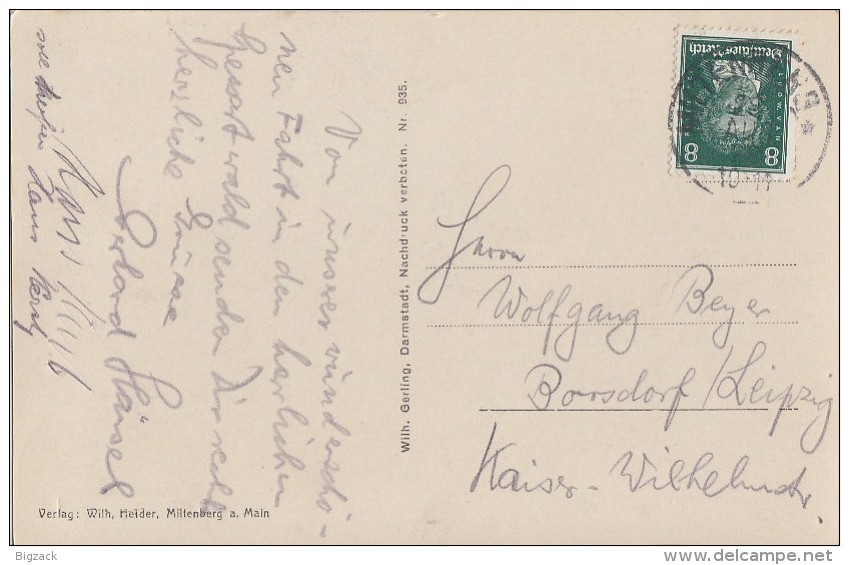 Von unserer wunderschö-
nen Fahrt in den herrlichen
Spessartwald senden Dir recht
herzliche Grüsse
Gerhard Häusel
Hans
Hans
Wilh. Gerling, Darmstadt, Nachdruck verboten. Nr. 935.
Deutsches Reich
LUDWIG VAN
8 8
10-11
Herrn
Wolfgang Beyer
Borsdorf/Leipzig
Kaiser-Wilhelmstr.
Verlag: Wilh. Heider, Miltenberg a. Main
Bigzack
delcampe.net